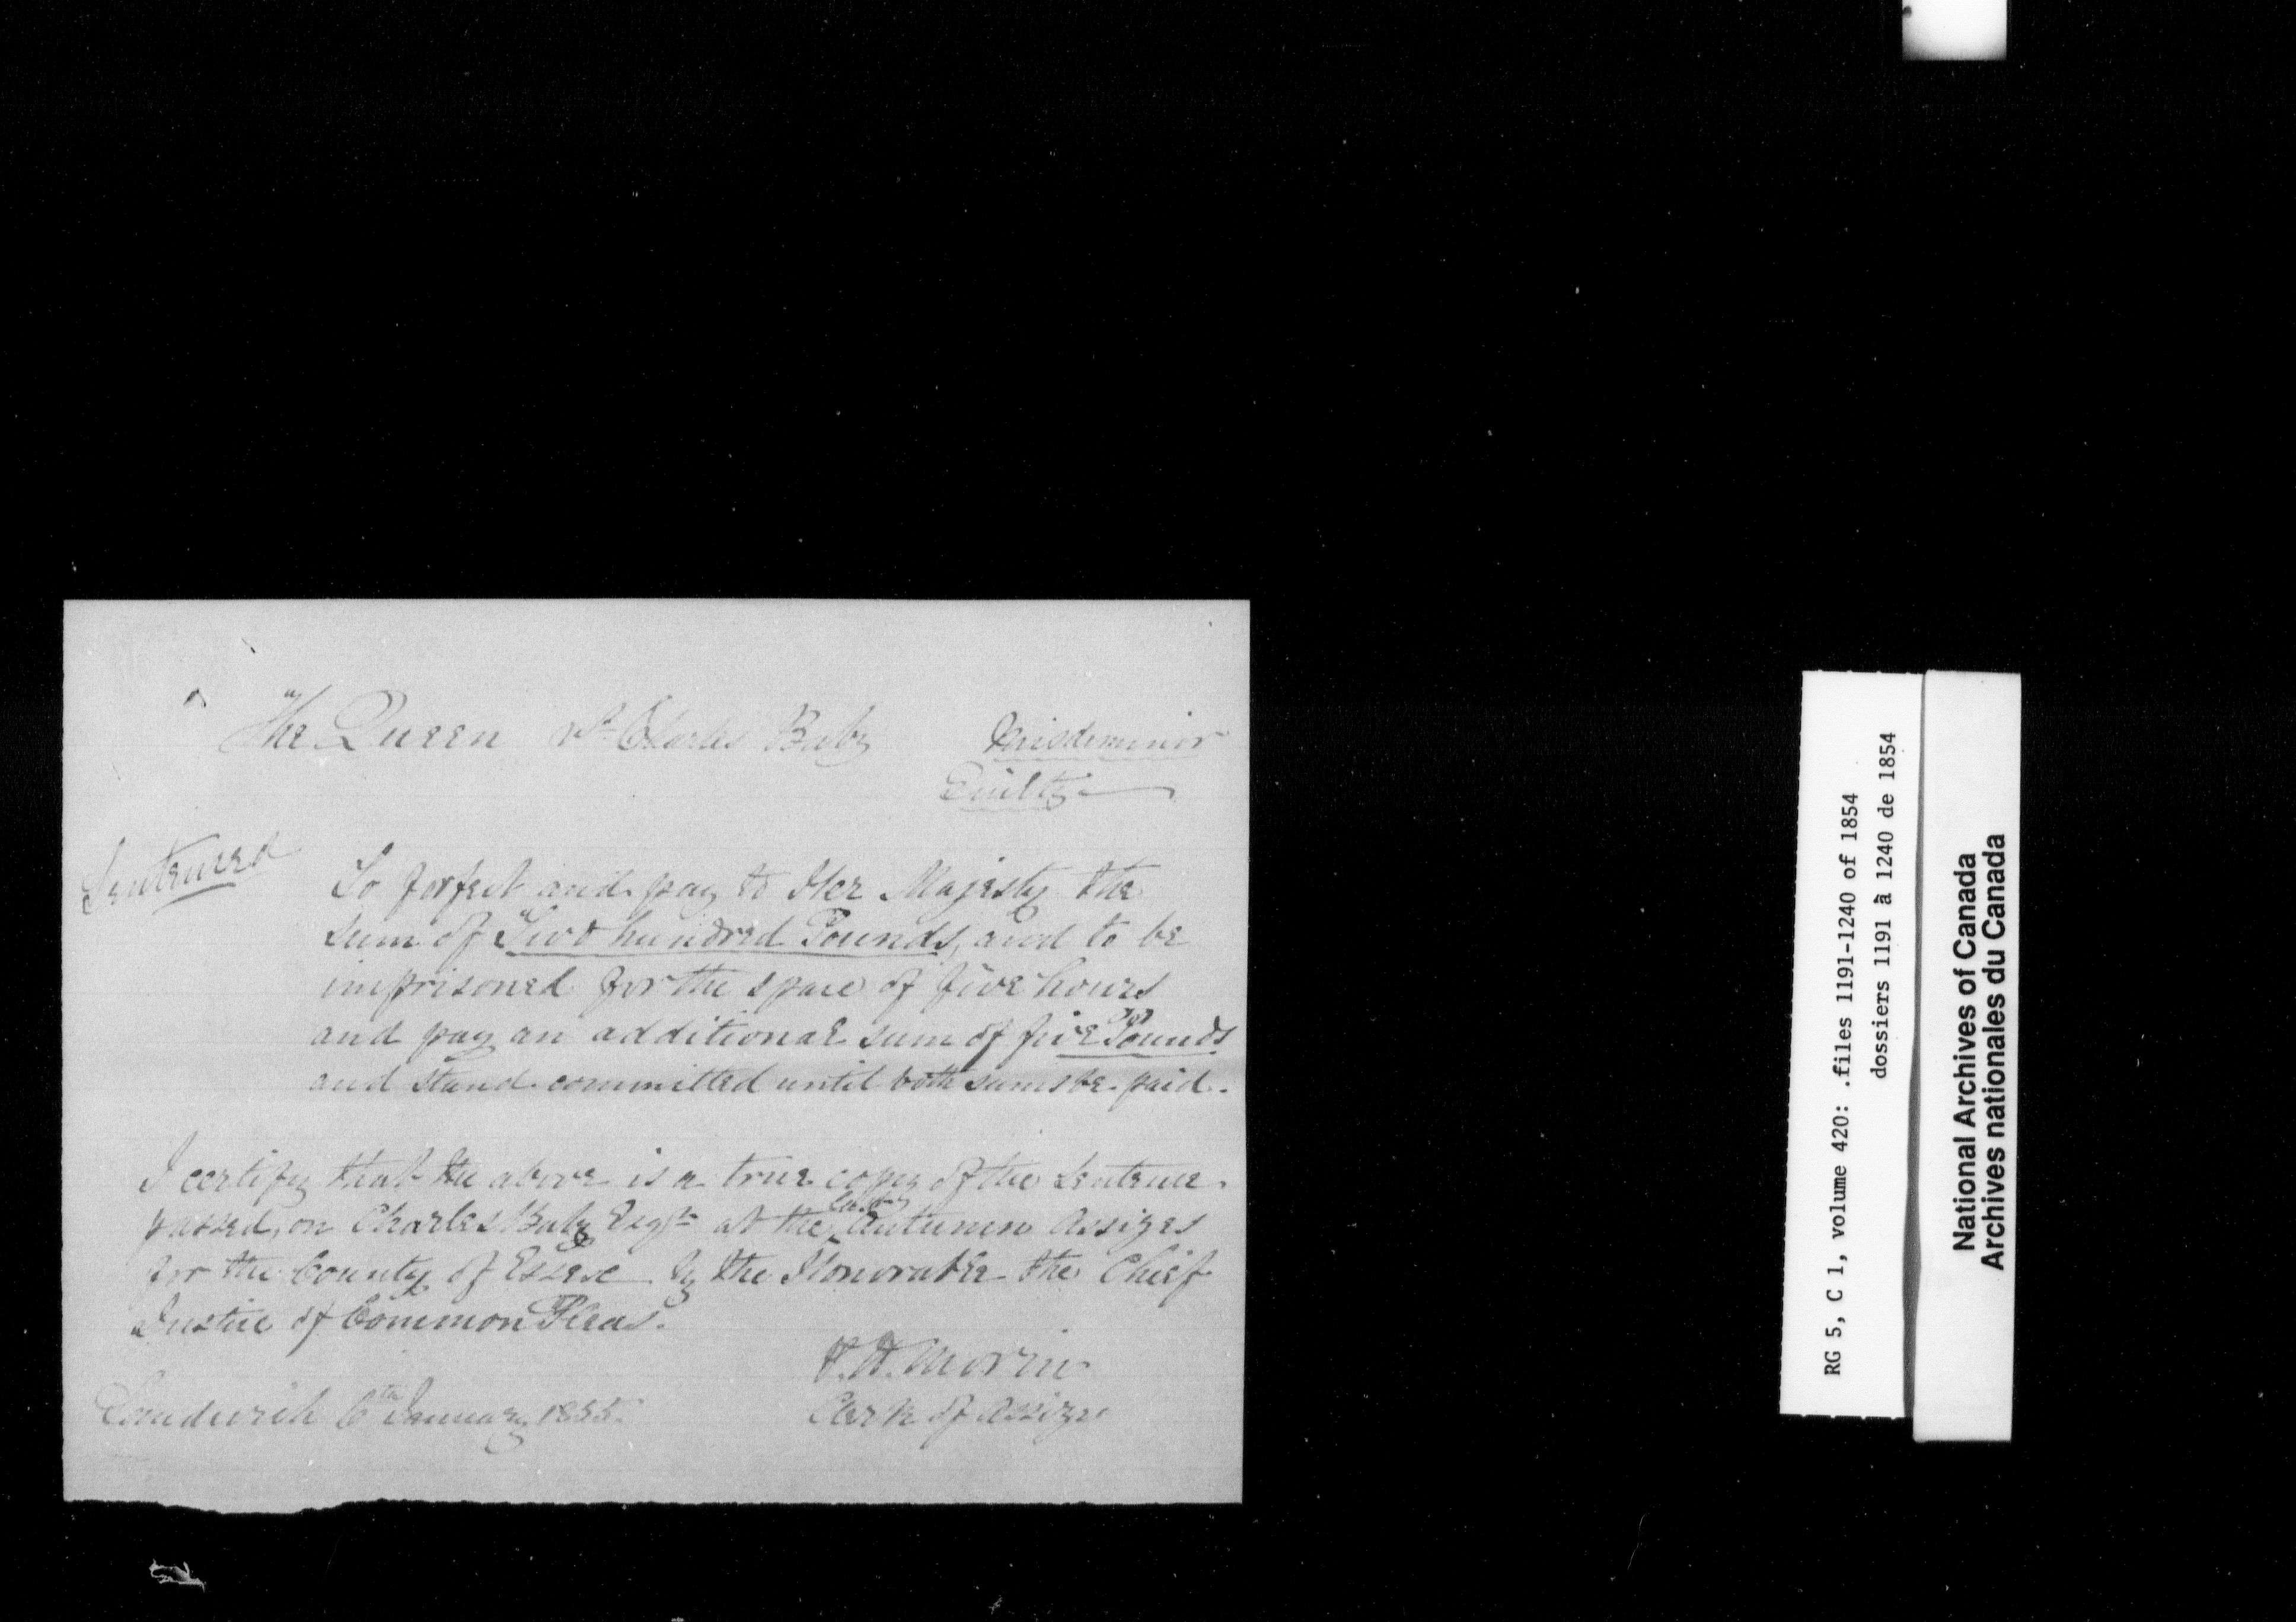 The Queen vs Charles Baby Misdeminor
Guilty
Sentenced
To forfeit and pay to Her Majesty the
sum of Two hundred Pounds, and to be
imprisoned for the space of five hours
and pay an additional sum of five Pounds
and stand committed until both sums be paid.
I certify that the above is a true copy of the Sentence
passed, on Charles Baby Esqr at the last Autumn Assizes
for the County of Essex by the Honorable the Chief
Justice of Common Pleas.
P. H. Morin
Clerk of Assize
Sandwich 6th January 1855.
RG 5, C 1, volume 420: .files 1191-1240 of 1854
dossiers 1191 à 1240 de 1854
National Archives of Canada
Archives nationales du Canada